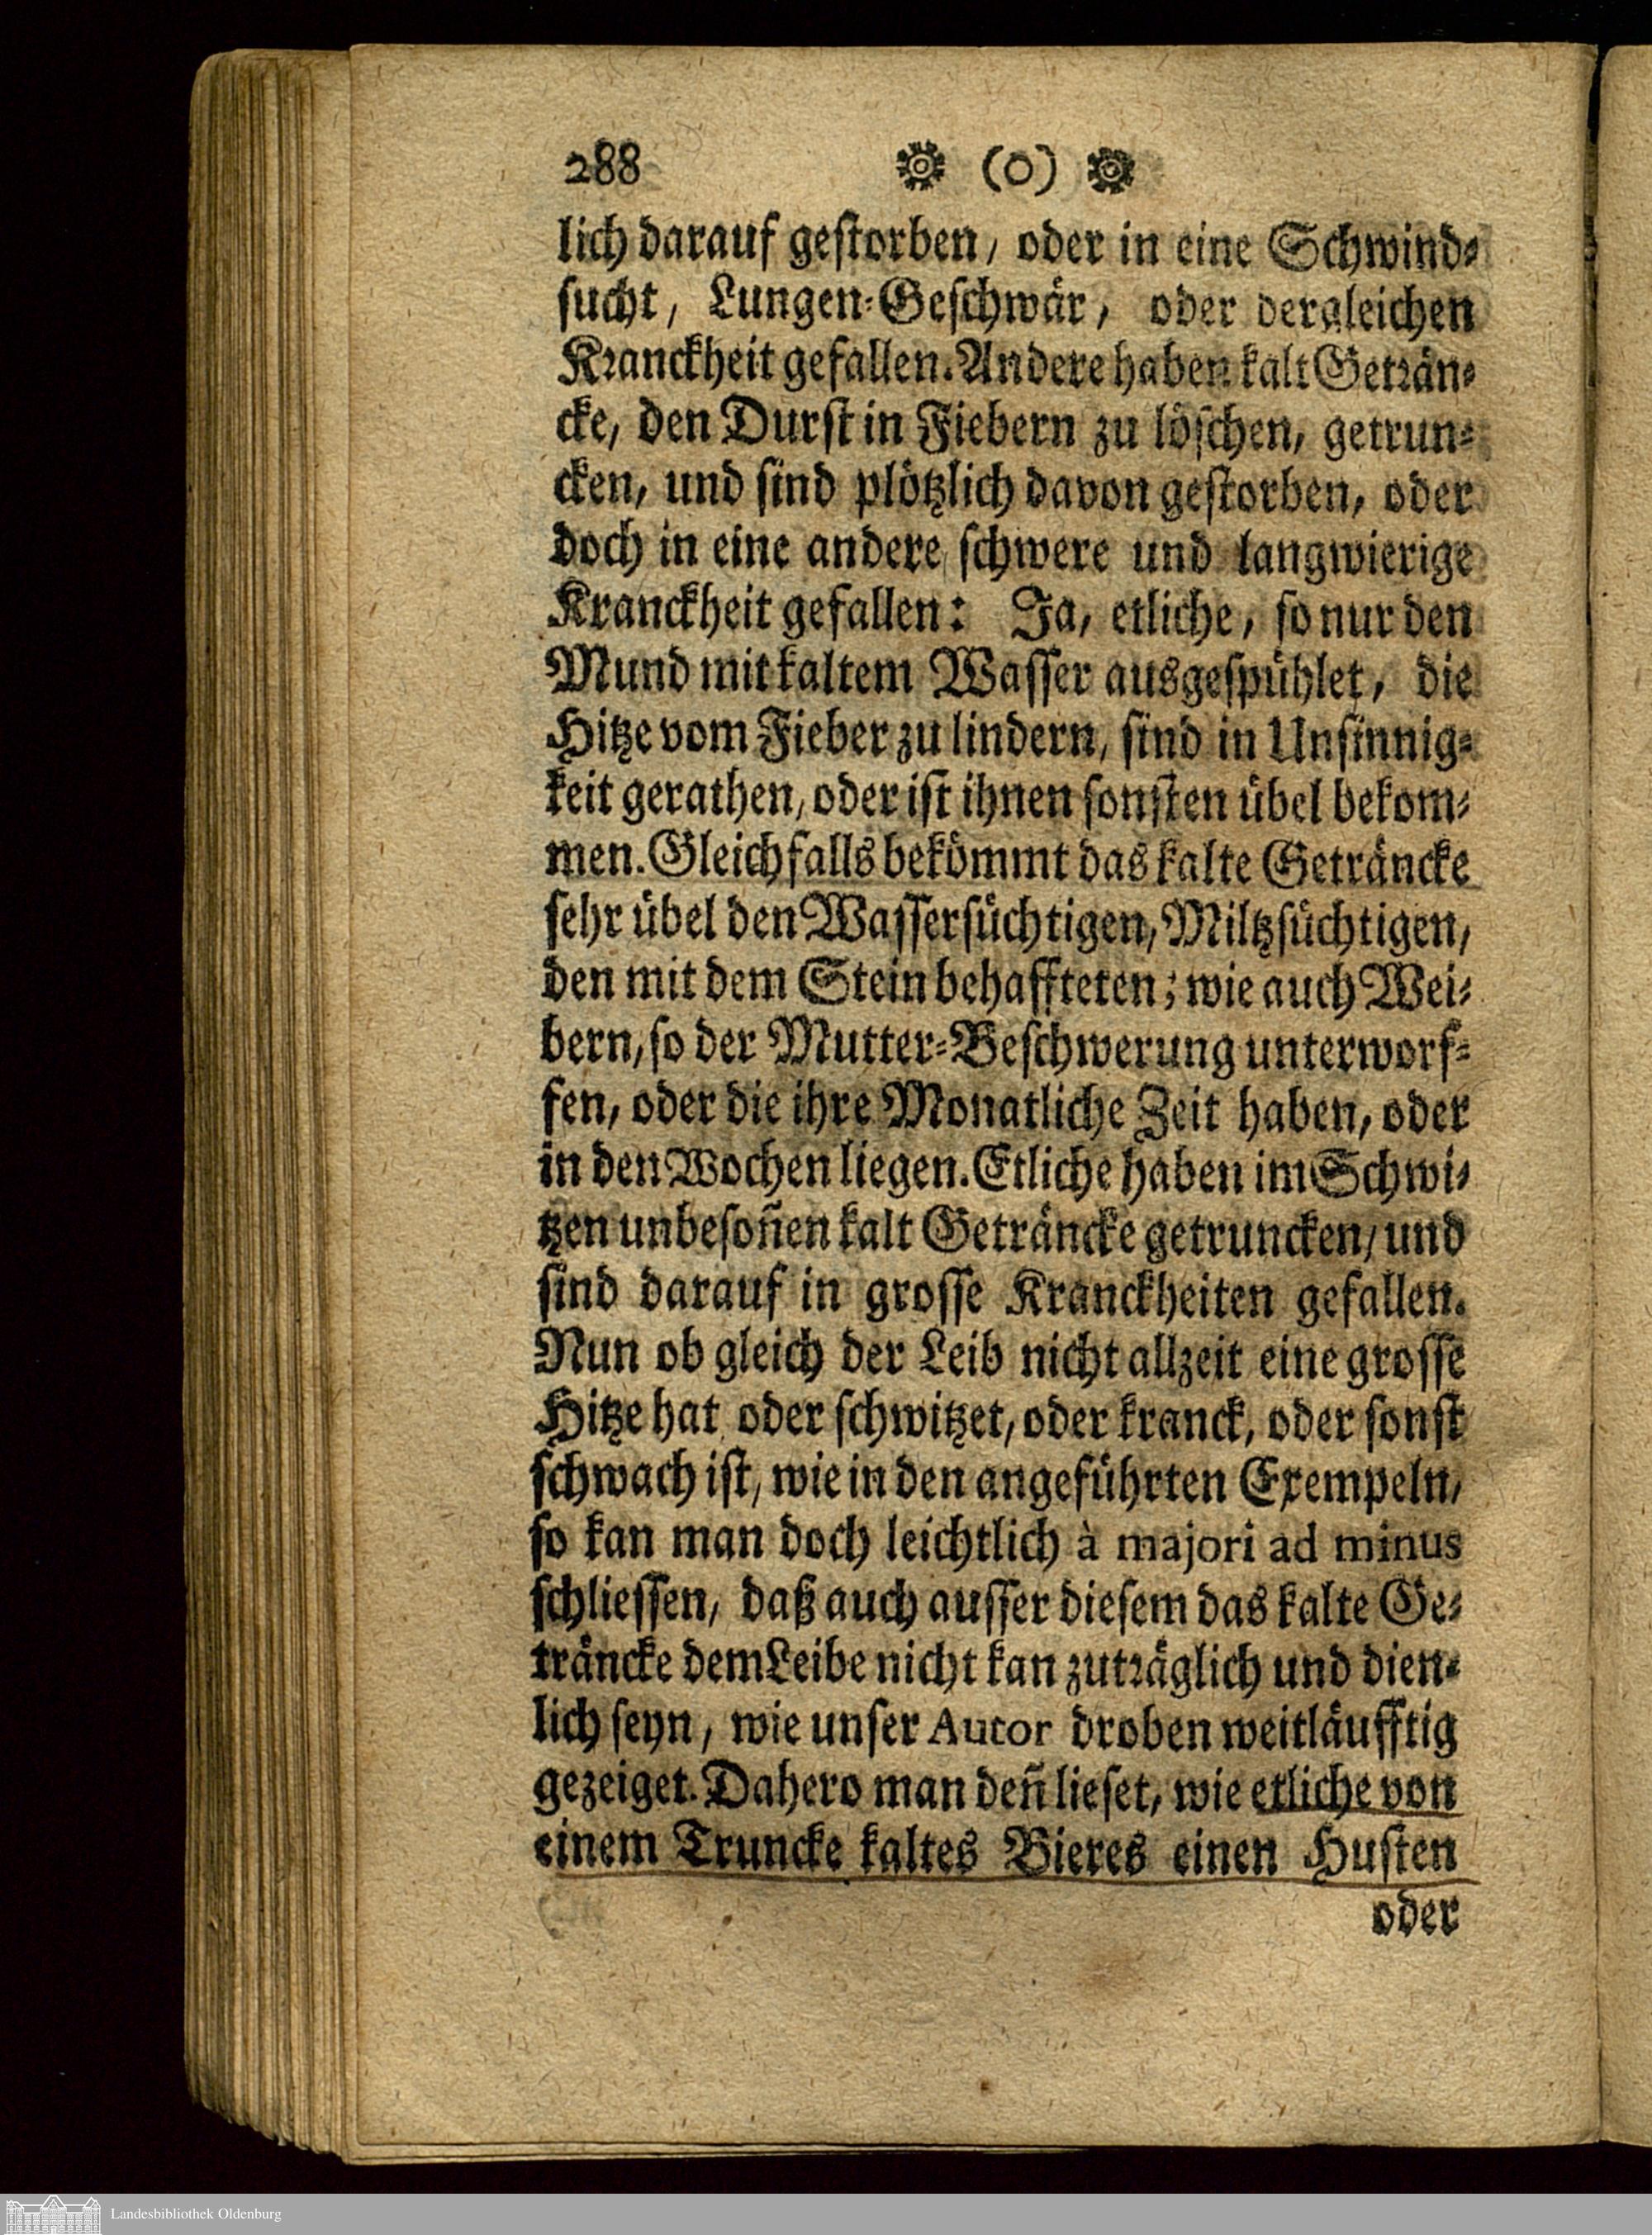 288 (O)
lich darauf gestorben, oder in eine Schwind-
sucht, Lungen-Geschwär, oder dergleichen
Kranckheit gefallen. Andere haben kalt Geträn-
cke, den Durst in Fiebern zu löschen, getrun-
cken, und sind plötzlich davon gestorben, oder
doch in eine andere schwere und langwierige
Kranckheit gefallen: Ja, etliche, so nur den
Mund mit kaltem Wasser ausgespühlet, die
Hitze vom Fieber zu lindern, sind in Unsinnig-
keit gerathen, oder ist ihnen sonsten übel bekom-
men. Gleichfalls bekömmt das kalte Geträncke
sehr übel den Wassersüchtigen, Miltzsüchtigen,
den mit dem Stein behaffteten; wie auch Wei-
bern, so der Mutter-Beschwerung unterworf-
fen, oder die ihre Monatliche Zeit haben, oder
in den Wochen liegen. Etliche haben im Schwi-
tzen unbesoñen kalt Geträncke getruncken, und
sind darauf in grosse Kranckheiten gefallen.
Nun ob gleich der Leib nicht allzeit eine grosse
Hitze hat oder schwitzet, oder kranck, oder sonst
schwach ist, wie in den angeführten Exempeln,
so kan man doch leichtlich à majori ad minus
schliessen, daß auch ausser diesem das kalte Ge-
träncke dem Leibe nicht kan zuträglich und dien-
lich seyn, wie unser Autor droben weitläufftig
gezeiget. Dahero man deñ lieset, wie etliche von
einem Truncke kaltes Bieres einen Husten
oder
Landesbibliothek Oldenburg